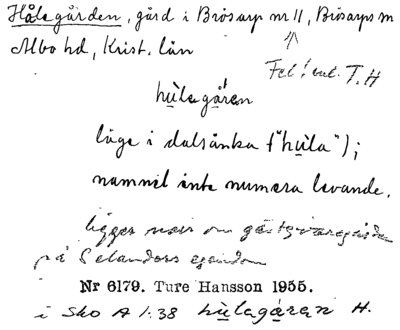 Hålagården, gård i Brösarp nr 11, Brösarps sn
Albo hd, Krist. län
Fel! enl. T.H
hùlagáren
läge i dalsänka ("hùla");
namnet inte numera levande.
ligger norr om gästgivaregården
på Selanders egendom
Nr 6179. Ture Hansson 1955.
i Sko A 1:38 hùlagáren H.